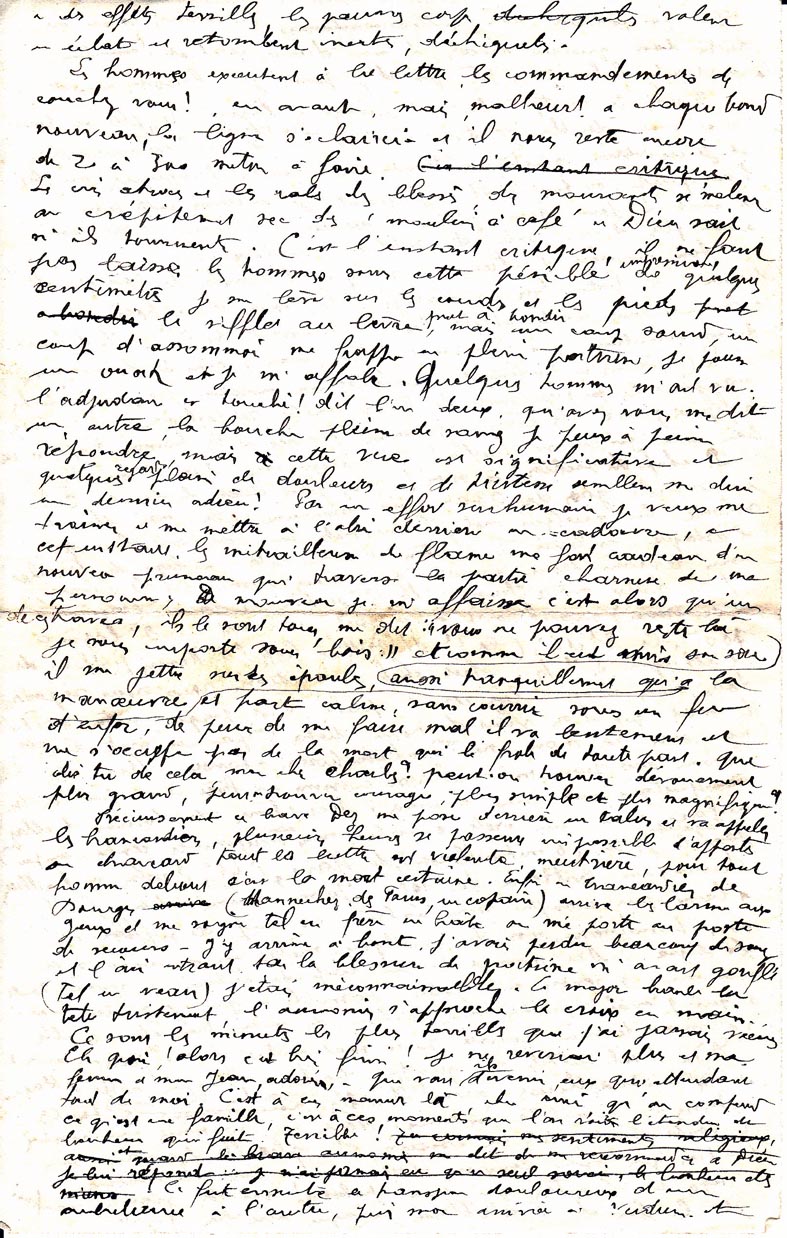 des effets terribles, les pauvres corps déchiquetés volent
en éclat et retombent inertes, déchiquetés.
Les hommes executent à la lettre les commandements de
couchez vous! en avant, mais malheur! a chaque bond
nouveau, la ligne s'éclaircie et il nous reste encore
de 2 à 300 mètres à faire. C'est l'instant critique
Les cris atroces et les rals des blessés, des mourants se mêlent
au crépitement sec des "moulins à café" et Dieu sait
s'ils tournent. C'est l'instant critique, il ne faut
pas laisser les hommes sous cette pénible impression! de quelques
centimètres je me lève sur les coudes et les pieds pret
a bondir le sifflet aux lèvres, pret à bondir, mais un coup sourd, un
coup d'assommoir me frappe en pleine poitrine, je pousse
un ouah et je m'affale. Quelques hommes m'ont vu.
l'adjudant est touché! dit l'un deux, qu'avez vous, me dit
un autre, la bouche pleine de sang je peux à peine
répondre, mais cette vue est significative et
quelques regards pleins de douleurs et de tristesse semblent me dire
un dernier adieu! Par un effort surhumain je veux me
trainer et me mettre à l'abri derrière un cadavre, a
cet instant, les mitrailleurs de flanc me font cadeau d'un
nouveau pruneau qui traverse la partie charnue de ma
personne, de nouveau je m'affaisse c'est alors qu'un
des braves, ils le sont tous, me dit: "vous ne pouvez rester là
je vous emporte sous bois." et comme
il me jette sur ses épaules, aussi tranquillement qu'a la
manœuvre et part calme, sans courrir sous un feu
d'enfer, de peur de me faire mal il va lentement et
ne s'occupe pas de la mort qui le frole de toute part. Que
dis tu de cela, mon cher Charles? peut-on trouver dévouement
plus grand, peut-on trouver courage, plus simple et plus magnifique?
Précieusement ce brave me pose derrière un talus et va appeler
les brancardiers, plusieurs heures se passent impossible d'apporter
un brancard tant la lutte est violente, meurtrière, pour tout
homme debout c'est la mort certaine. Enfin un brancardier de
Bourges (Mannechez de Tours, un copain) arrive les larmes aux
yeux et me soigne tel un frère en hâte on me porte au poste
de secours - J'y arrive à bout, j'avais perdu beaucoup de sang
et l'air entrant par la blessure de poitrine m'avait gonflé
(tel un veau) j'étais méconnaissable. Le major branle la
tete tristement, l'aumonier s'approche la croix en main.
Ce sont les minutes les plus terribles que j'ai jamais vécues
Eh quoi! alors c'est fini! je ne reverrai plus et ma
femme et mon Jean, adorés, - que vont ils devenir, eux qui attendent
tant de moi. C'est à ces moments là cher ami qu'on comprend
ce qu'est une famille, c'est à ces moments que l'on voit l'étendue du
bonheur qui fuit. Terrible! mes sentiments religieux,
le brave aumonier me dit de me recommander à Dieu
je lui répond: je n'ai jamais eu qu'un seul souci, le bonheur des
miens Ce fut ensuite le transport douloureux d'une
ambulance à l'autre, puis mon arrivée à Verdun. et